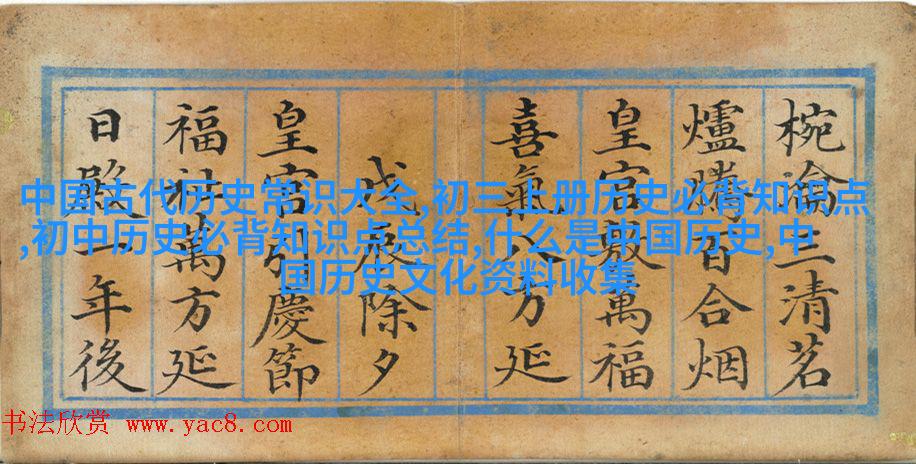 椀瀹三清茗
爐燔百合烟
皇宫敷萬福
喜氣八方延
戊辰除夕
皇宫引慶節
福祉萬方延
日殿一年後
中国古代历史常识大全,初三上册历史必背知识点
,初中历史必背知识点总结,什么是中国历史,中
国历史文化资料收集
书法欣赏 www.yac8.com